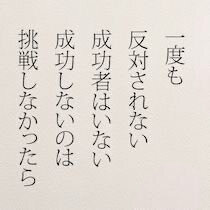 一度も
反対されない
成功者はいない
成功しないのは
挑戦しなかったら